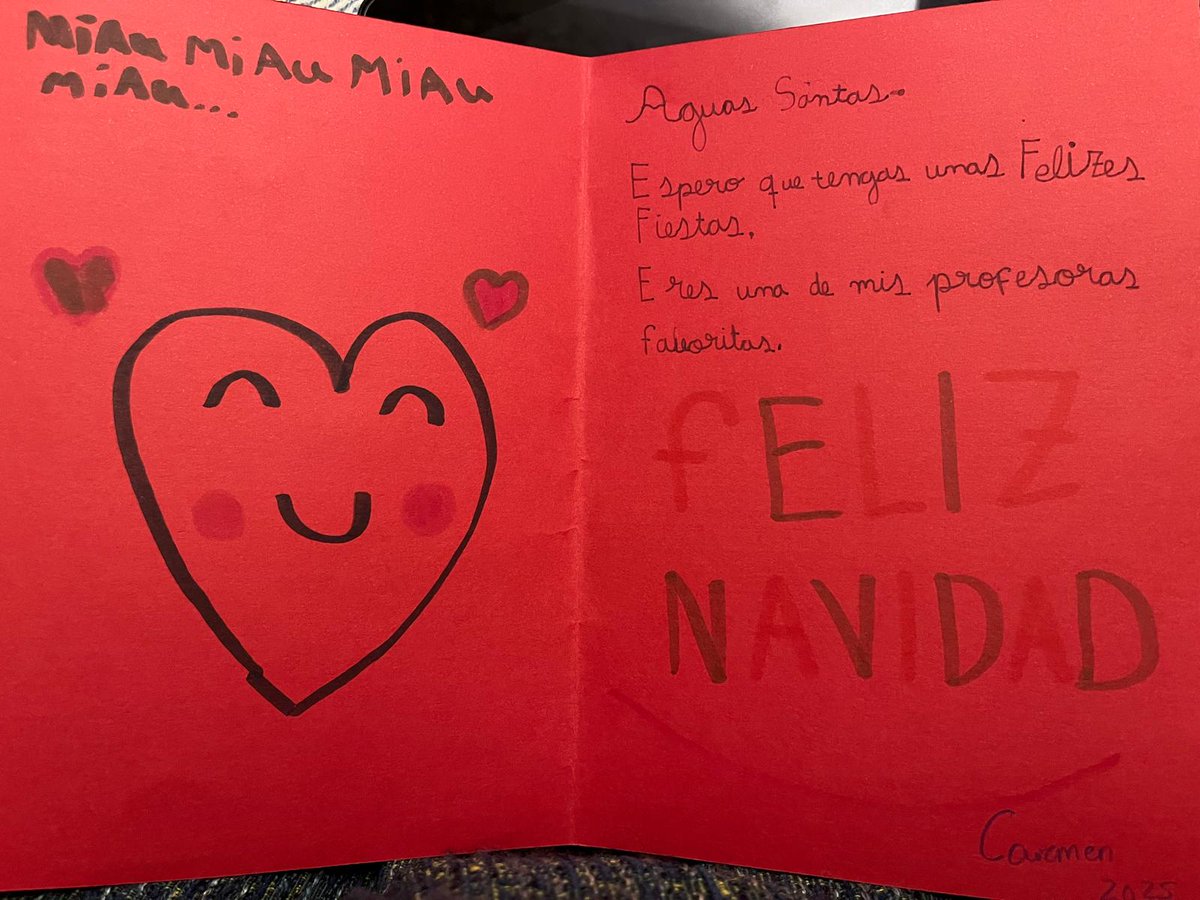 MiAu MiAu MiAu
MiAu...
Aguas Santas-
Espero que tengas unas Felizes
Fiestas.
Eres una de mis profesoras
favoritas.
FELIZ
NAVIDAD
Carmen
2025